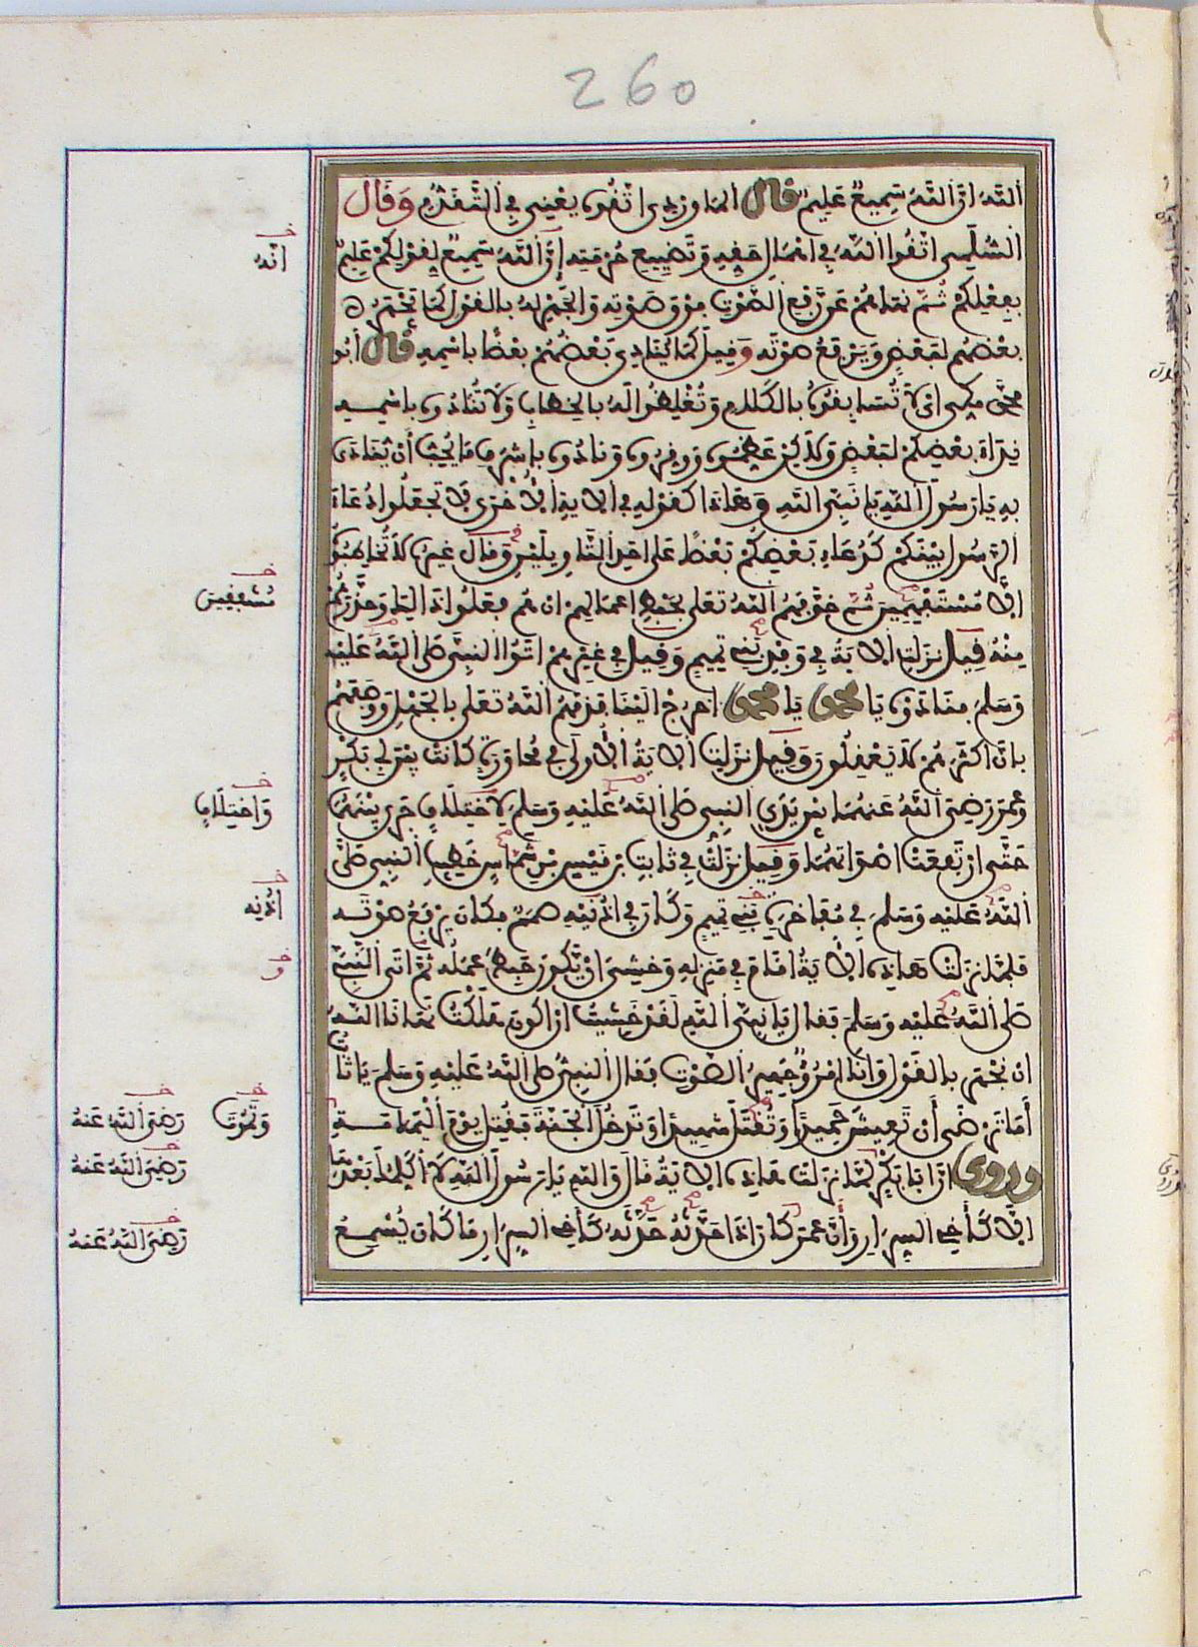 260
اللَّهَ إِنَّ اللَّهَ سَمِيعٌ عَلِيمٌ قال الماوردي اتقوه يعني في التقدم وقال
السلمي اتقوا الله في إهمال حقه وتضييع حرمته إن الله سميع لقولكم عليم
بفعلكم ثم نهاهم عن رفع الصوت فوق صوته والجهر له بالقول كما يجهر
بعضهم لبعض ويرفع صوته وقيل كما ينادي بعضهم بعضا باسمه قال أبو
محمد مكي أي لا تسابقوه بالكلام وتغلظوا له بالخطاب ولا تنادوه باسمه
نداء بعضكم لبعض ولكن عظموه ووقروه ونادوه بأشرف ما يحب أن ينادى
به يا رسول الله يا نبي الله وهذا كقوله في الآية الأخرى لا تجعلوا دعاء
الرسول بينكم كدعاء بعضكم بعضا على أحد التأويلين وقال غيره لا تخاطبوه
إلا مستفهمين ثم خوفهم الله تعلى بحبط أعمالهم إن هم فعلوا ذالك وحذرهم
منه قيل نزلت الآية في وفد بني تميم وقيل في غيرهم أتوا النبي صلى الله عليه
وسلم فنادوه يا محمد يا محمد اخرج إلينا فذمهم الله تعلى بالجهل ووصفهم
بأن أكثرهم لا يعقلون وقيل نزلت الآية الأولى في محاورة كانت بين أبي بكر
وعمر رضي الله عنهما بين يدي النبي صلى الله عليه وسلم لاختلاف جرى بينهما
حتى ارتفعت أصواتهما وقيل نزلت في ثابت بن قيس بن شماس خطيب النبي صلى
الله عليه وسلم في مفاخرة بني تميم وكان في أذنيه صمم فكان يرفع صوته
فلما نزلت هاذه الآية أقام في منزله وخشي أن يكون حبط عمله ثم أتى النبي
صلى الله عليه وسلم فقال يا نبي الله لقد خشيت أن أكون هلكت نهانا الله
أن نجهر بالقول وأنا امرؤ جهير الصوت فقال النبي صلى الله عليه وسلم يا ثابت
أما ترضى أن تعيش حميدا وتقتل شهيدا وتدخل الجنة فقتل يوم اليمامة
وروي أن أبا بكر لما نزلت هاذه الآية قال والله يا رسول الله لا أكلمك بعدها
إلا كأخي السرار وأن عمر كان إذا حدثه حدثه كأخي السرار ما كان يسمع
انه
مشفقين
واختلاف
أذنه
و
وتموت
رضي الله عنه
رضي الله عنه
رضي الله عنه